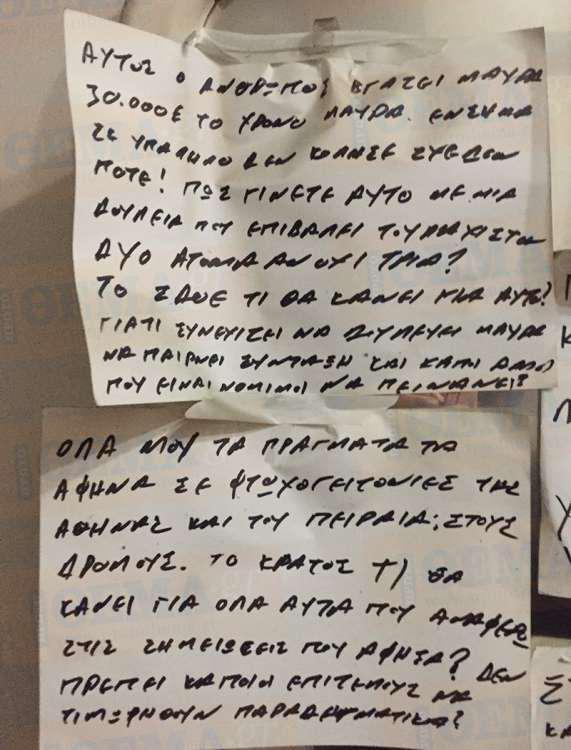 ΑΥΤΟΣ Ο ΑΝΘΡΩΠΟΣ ΒΓΑΖΕΙ ΜΑΥΡΑ
30.000€ ΤΟ ΧΡΟΝΟ ΜΑΥΡΑ. ΕΝΣΗΜΑ
ΣΕ ΥΠΑΛΗΛΟ ΔΕΝ ΚΟΛΗΣΕ ΣΧΕΔΩΝ
ΠΟΤΕ! ΠΩΣ ΓΙΝΕΤΕ ΑΥΤΟ ΜΕ ΜΙΑ
ΔΟΥΛΕΙΑ ΠΟΥ ΕΠΙΒΑΛΕΙ ΤΟΥΛΑΧΙΣΤΩΝ
ΔΥΟ ΑΤΟΜΑ ΑΝ ΟΥΧΙ ΤΡΙΑ?
ΤΟ ΣΔΟΕ ΤΙ ΘΑ ΚΑΝΕΙ ΓΙΑ ΑΥΤΟ?
ΓΙΑΤΙ ΣΥΝΕΧΙΖΕΙ ΝΑ ΔΟΥΛΕΥΕΙ ΜΑΥΡΑ
ΝΑ ΠΑΙΡΝΕΙ ΣΥΝΤΑΞΗ ΚΑΙ ΚΑΠΟΙ ΑΛΛΟΙ
ΠΟΥ ΕΙΝΑΙ ΝΟΜΙΜΟΙ ΝΑ ΠΕΙΝΑΝΕ?
ΟΛΑ ΜΟΥ ΤΑ ΠΡΑΓΜΑΤΑ ΤΑ
ΑΦΗΝΑ ΣΕ ΦΤΩΧΟΓΕΙΤΟΝΙΕΣ ΤΗΣ
ΑΘΗΝΑΣ ΚΑΙ ΤΟΥ ΠΕΙΡΑΙΑ, ΣΤΟΥΣ
ΔΡΟΜΟΥΣ. ΤΟ ΚΡΑΤΟΣ ΤΙ ΘΑ
ΚΑΝΕΙ ΓΙΑ ΟΛΑ ΑΥΤΑ ΠΟΥ ΑΝΑΦΕΡΩ
ΣΤΙΣ ΣΗΜΕΙΩΣΕΙΣ ΠΟΥ ΑΦΗΣΑ? ΔΕΝ
ΠΡΕΠΕΙ ΚΑΠΟΙΟΙ ΕΠΙΤΕΛΟΥΣ ΝΑ
ΤΙΜΩΡΗΘΟΥΝ ΠΑΡΑΔΕΙΓΜΑΤΙΚΑ?